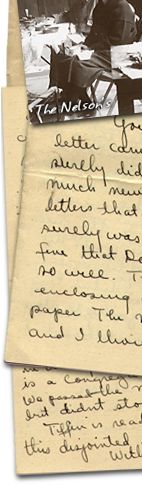 The Nelsons
You
letter cam
surely did
much new
letters that
surely was
fine that
so well. T
enclosing
paper The
and I thou
is a Congreg
We passed the
but didnt sto
Tiffin is read
this disjointed
With